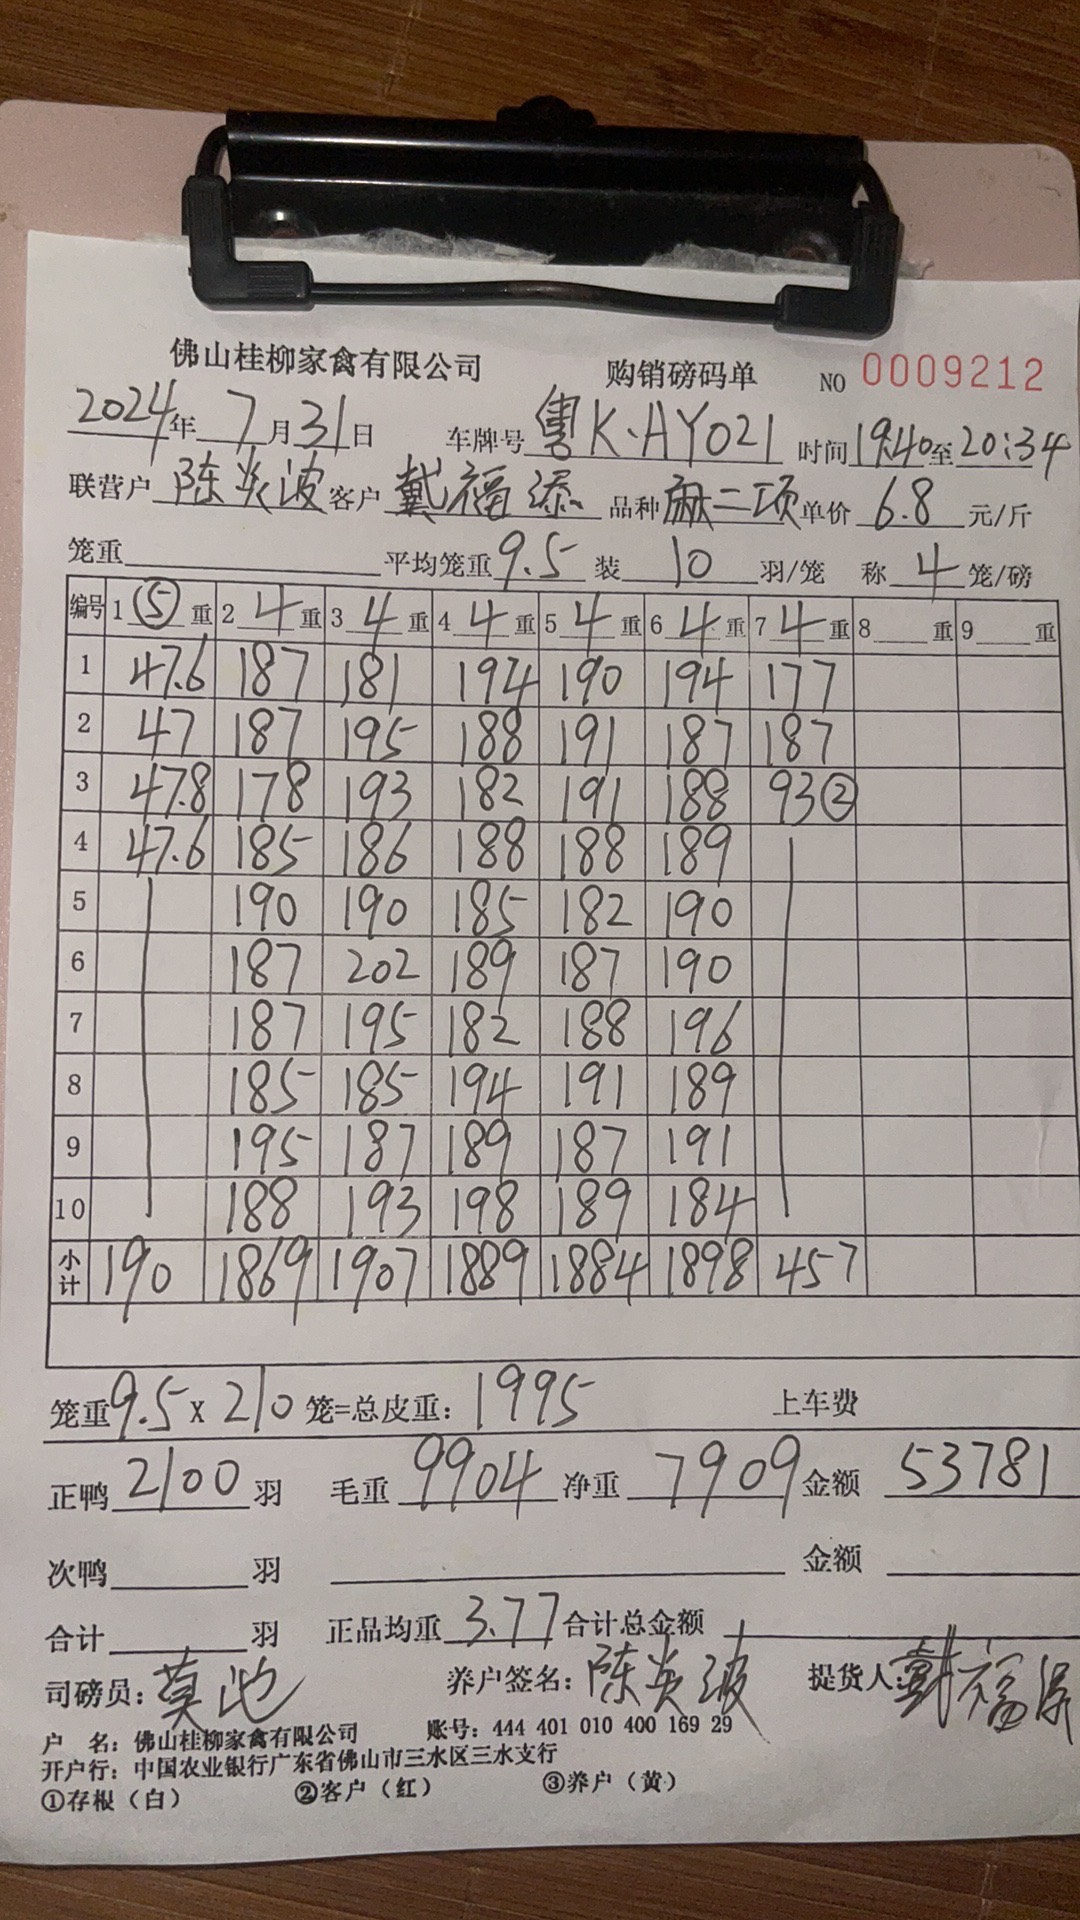 佛山桂柳家禽有限公司 购销磅码单 NO 0009212
2024年7月31日 车牌号 粤K·AY021 时间19:40至20:34
联营户 陈炎波 客户 戴福添 品种 麻二项 单价 6.8 元/斤
笼重 平均笼重 9.5 装 10 羽/笼 称 4 笼/磅
编号 1 ⑤ 重 2 4 重 3 4 重 4 4 重 5 4 重 6 4 重 7 4 重 8 重 9 重
1 47.6 187 181 194 190 194 177
2 47 187 195 188 191 187 187
3 47.8 178 193 182 191 188 93②
4 47.6 185 186 188 188 189
5 190 190 185 182 190
6 187 202 189 187 190
7 187 195 182 188 196
8 185 185 194 191 189
9 195 187 189 187 191
10 188 193 198 189 184
小计 190 1869 1907 1889 1884 1898 457
笼重9.5 x 210 笼=总皮重: 1995 上车费
正鸭 2100 羽 毛重 9904 净重 7909 金额 53781
次鸭 羽 金额
合计 羽 正品均重 3.77 合计总金额
司磅员: 莫池 养户签名: 陈炎波 提货人: 戴福添
户 名: 佛山桂柳家禽有限公司 账号: 444 401 010 400 169 29
开户行: 中国农业银行广东省佛山市三水区三水支行
①存根（白） ②客户（红） ③养户（黄）